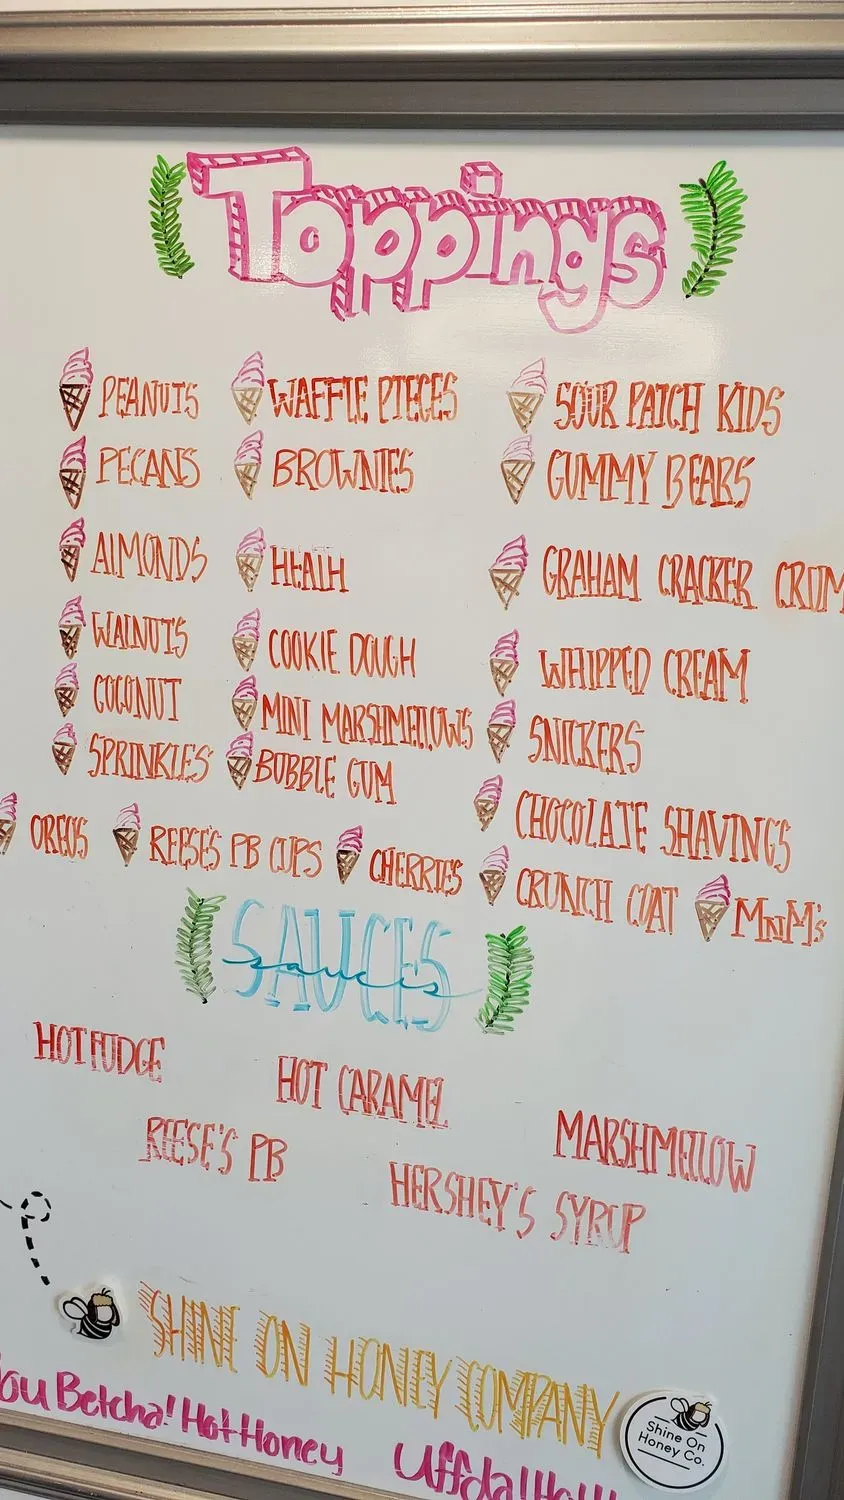 Toppings
PEANUTS WAFFLE PIECES SOUR PATCH KIDS
PECANS BROWNIES GUMMY BEARS
ALMONDS HEATH GRAHAM CRACKER CRUM
WALNUTS COOKIE DOUGH WHIPPED CREAM
COCONUT MINI MARSHMELLOWS SNICKERS
SPRINKLES BUBBLE GUM CHOCOLATE SHAVINGS
OREOS REESE'S PB CUPS CHERRIES CRUNCH COAT MnM's
SAUCES
sauces
HOT FUDGE HOT CARAMEL MARSHMELLOW
REESE'S PB HERSHEY'S SYRUP
SHINE ON HONEY COMPANY
Shine On
Honey Co.
You Betcha! Hot Honey Uffda! Hot